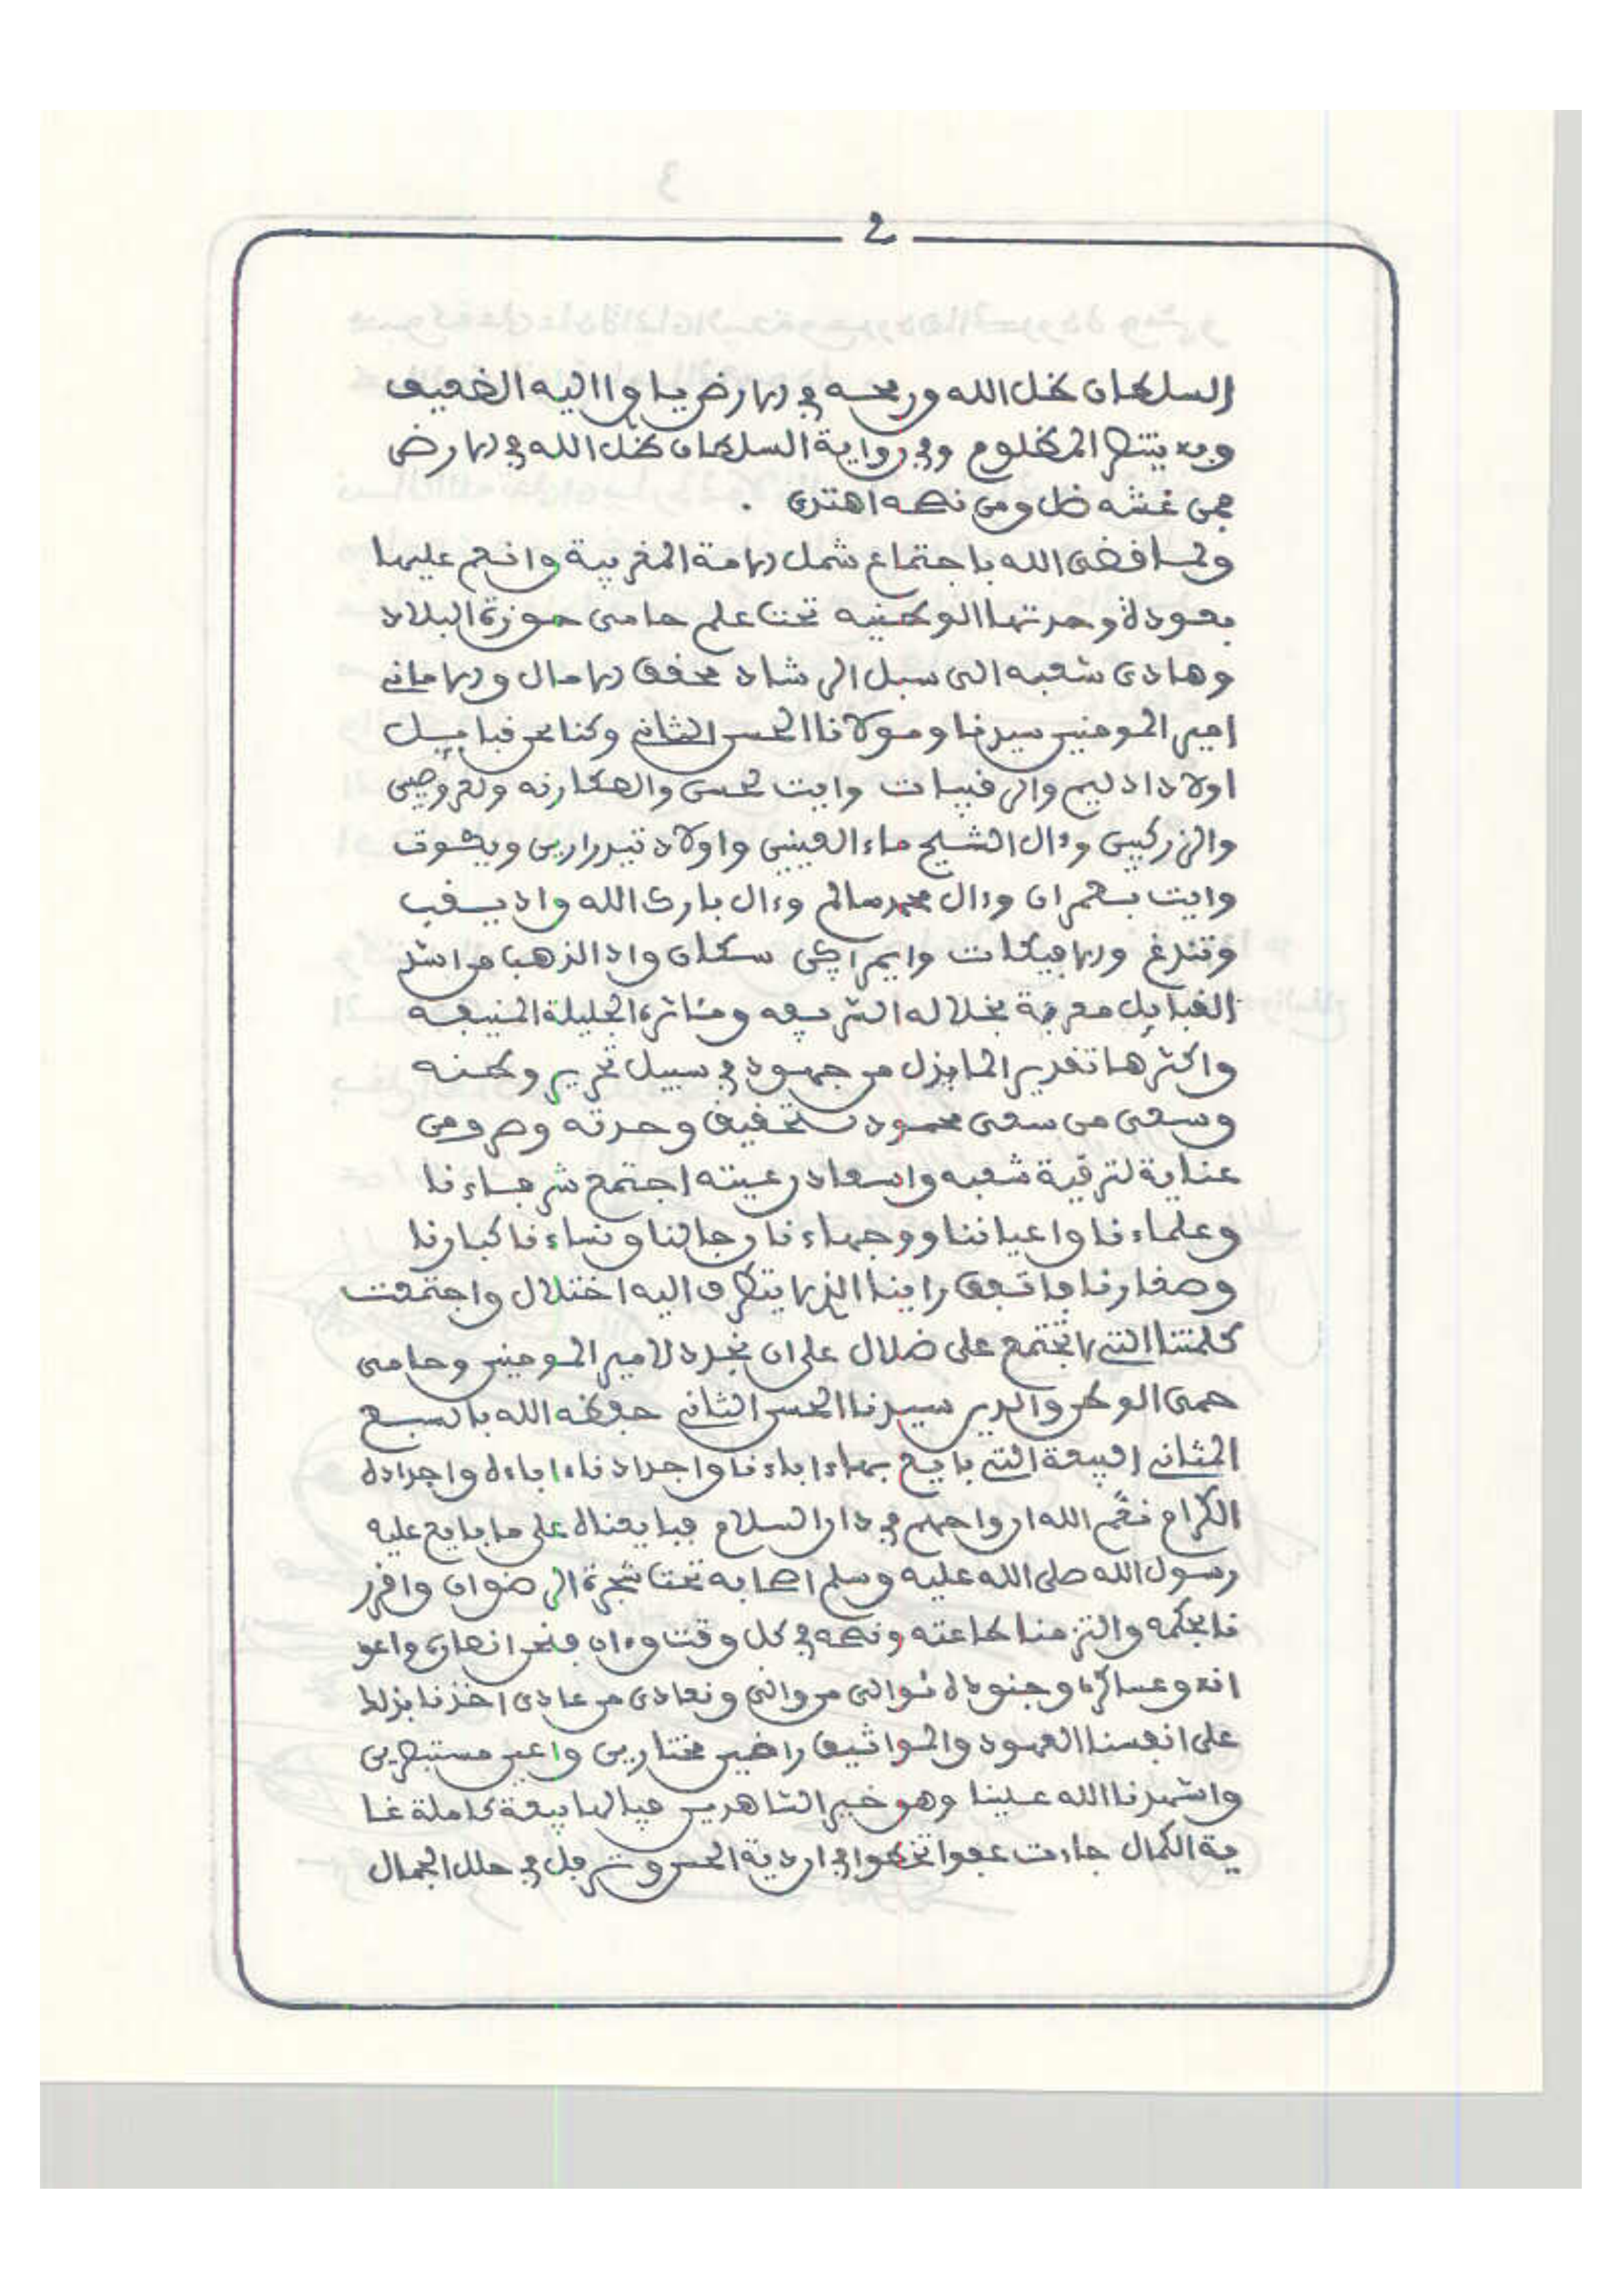 2
السلطان ظل الله ورمحه في الارض ياوا اليه الضعيف
وبه ينتصر المظلوم وفي رواية السلطان ظل الله في الارض
فمن غشه ضل ومن نصحه اهتدى .
ولما قضى الله باجتماع شمل الامة المغربية وانعم عليها
بعودة وحدتها الوطنيه تحت علم حامى حوزة البلاد
وهادى شعبه الى سبل الرشاد محقق الامال والامانى
امير المومنين سيدنا ومولانا الحسن الثانى وكنا نحن قبايل
اولاد ادليم والرقيبات وايت لحسن والعكارنه ولعروصيين
والزركيين وءال الشيخ ماء العينين واولاد تيدرارين ويكوت
وايت بعمران وءال محمد سالم وءال بارك الله واد يعقب
وتندغ والافيكات وايمراكن سكان واد الذهب من اشد
القبايل معرفة بخلاله الشريفه ومئاثره الجليلة المنيفه
واكثرها تقديرا لما بذل من جهود في سبيل تحرير وطنه
وسعى من سعى محمود لتحقيق وحدته وصرو من
عناية لترقية شعبه واسعاد رعيته اجتمع شرفاءنا
وعلماءنا واعياننا ووجهاءنا رجالنا ونساءنا كبارنا
وصغارنا فاتفق راينا الذي لا يتطرق اليه اختلال واجتمعت
كلمتنا التى لا تجتمع على ضلال على ان نجدد لامير المومنين وحامى
حمى الوطن والدين سيدنا الحسن الثانى حفظه الله بالسبع
المثانى البيعة التى بايع بها ءاباءنا واجدادنا ءاباءه واجداده
الكرام نعم الله ارواحهم في دار السلام فبايعناه على ما بايع عليه
رسول الله صلى الله عليه وسلم اصحابه تحت شجرة الرضوان واقرر
نا بحكمه والتزمنا طاعته ونصحه في كل وقت وءان فنحن انصاره واعو
انه وعساكره وجنوده نوالى من والى ونعادى من عادى اخذنا بذلك
على انفسنا العهود والمواثيق راضين مختارين واعين مستبصرين
واشهدنا الله علينا وهو خير الشاهدين فيالها بيعة كاملة غا
ية الكمال جاءت عفوا تخطوا في اردية الحسن وترفل في حلل الجمال